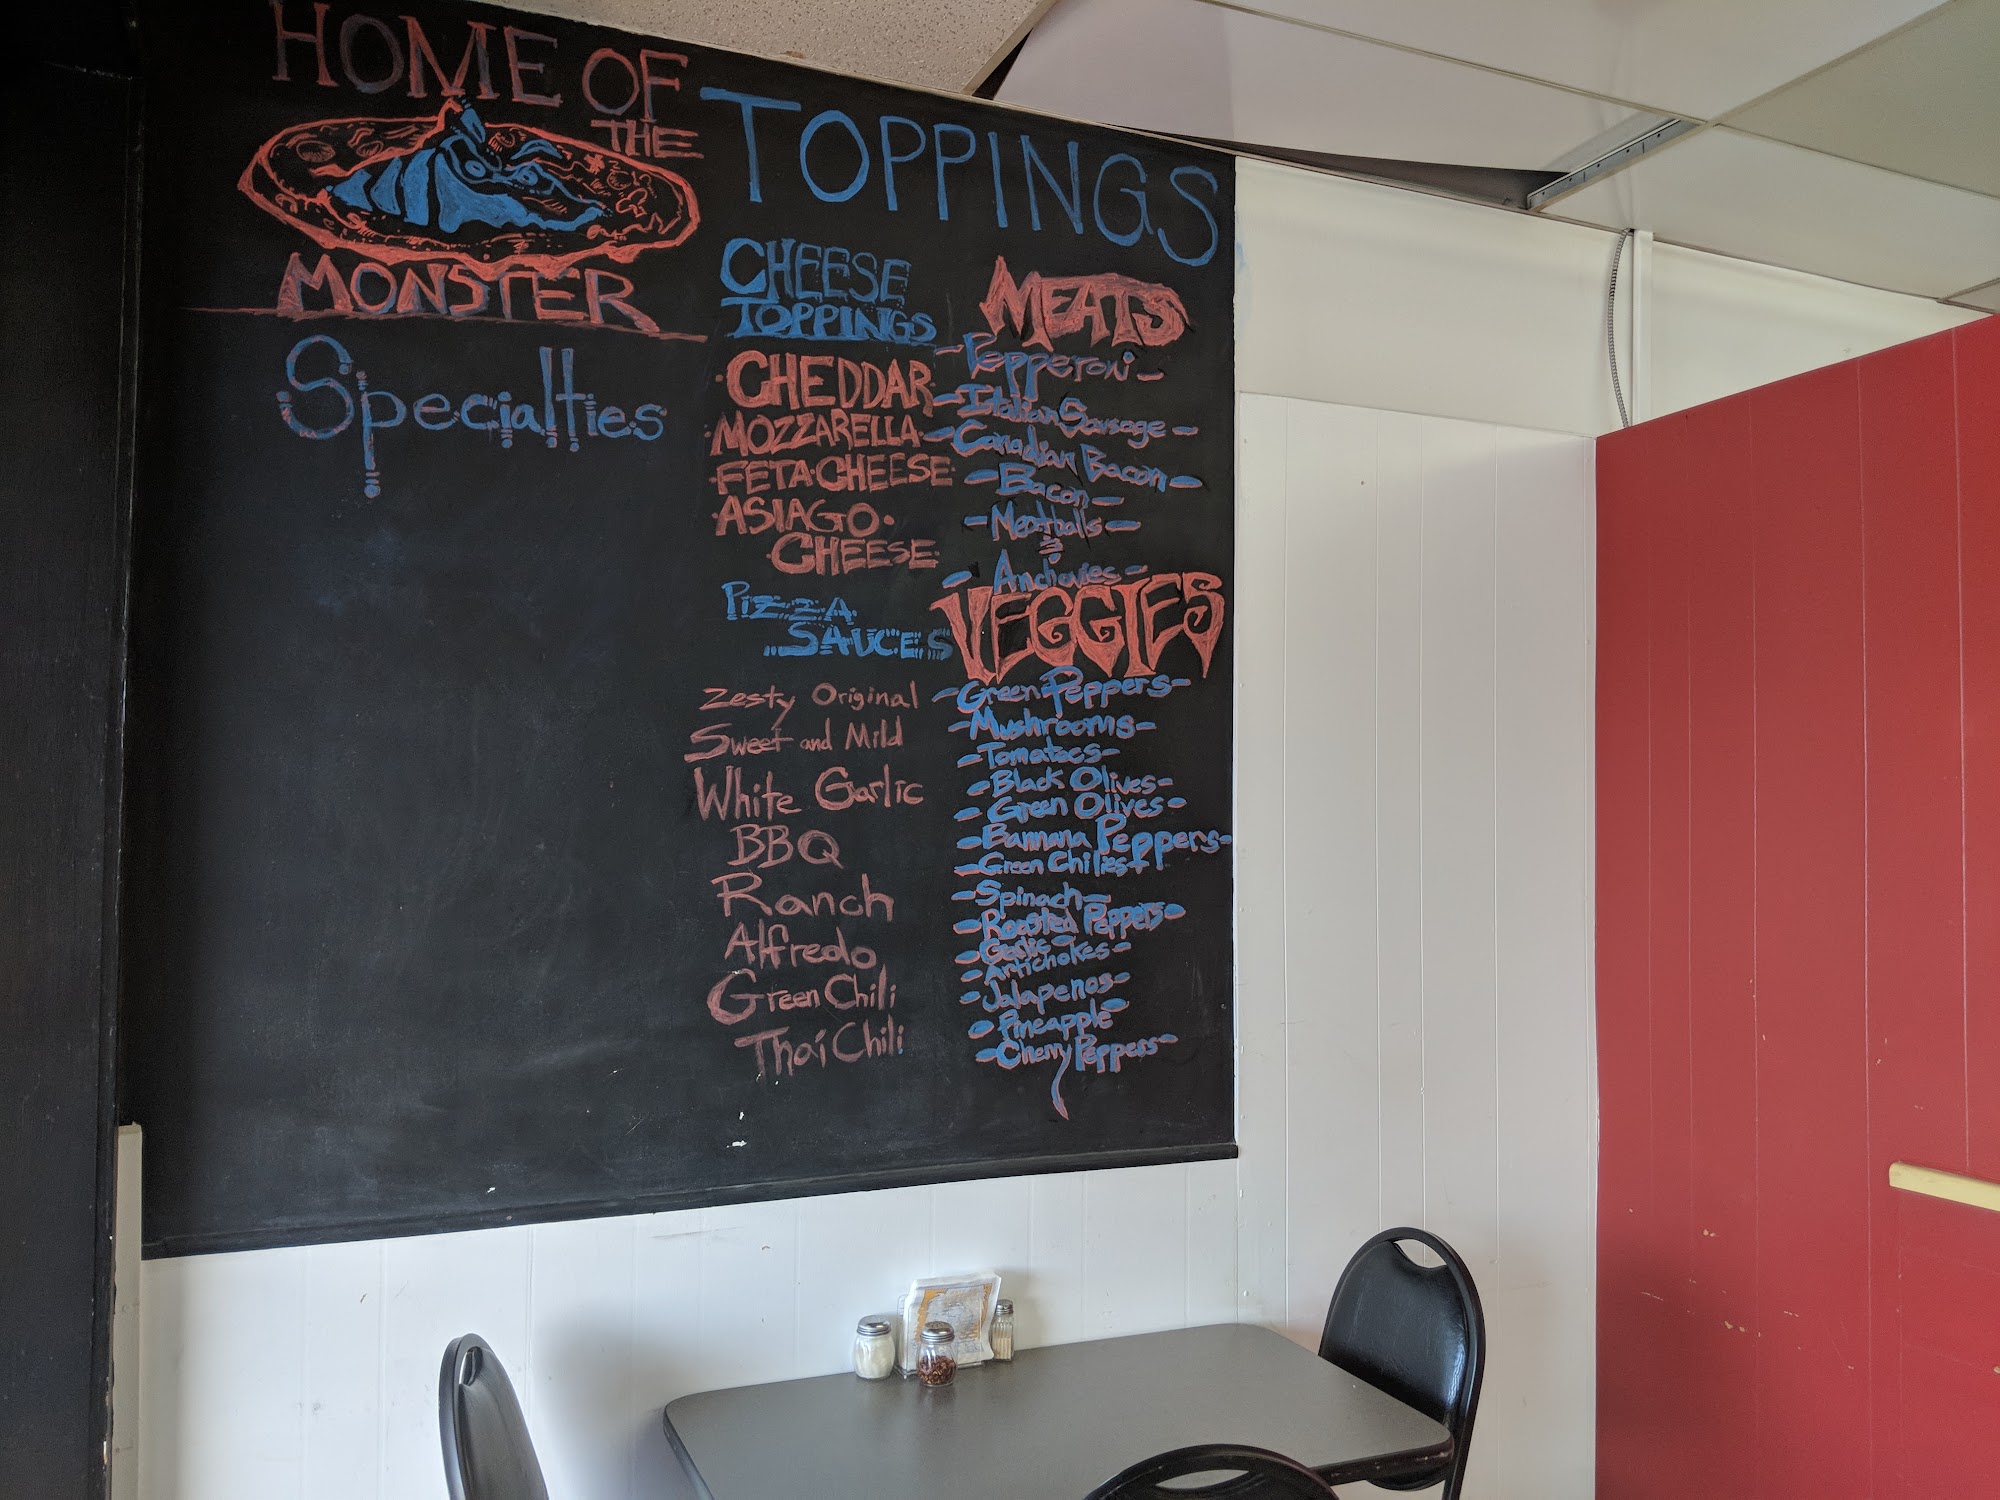 HOME OF
THE
MONSTER
Specialties
TOPPINGS
CHEESE
TOPPINGS
·CHEDDAR·
·MOZZARELLA·
·FETA·CHEESE·
·ASIAGO·
·CHEESE·
PIZZA
SAUCES
Zesty Original
Sweet and Mild
White Garlic
BBQ
Ranch
Alfredo
Green Chili
Thai Chili
MEATS
-Pepperoni-
-Italian Sausage-
-Canadian Bacon-
-Bacon-
-Meatballs-
-Anchovies-
VEGGIES
-Green Peppers-
-Mushrooms-
-Tomatoes-
-Black Olives-
-Green Olives-
-Bannana Peppers-
-Green Chilies-
-Spinach-
-Roasted Peppers-
-Garlic-
-Artichokes-
-Jalapenos-
-Pineapple-
-Cherry Peppers-